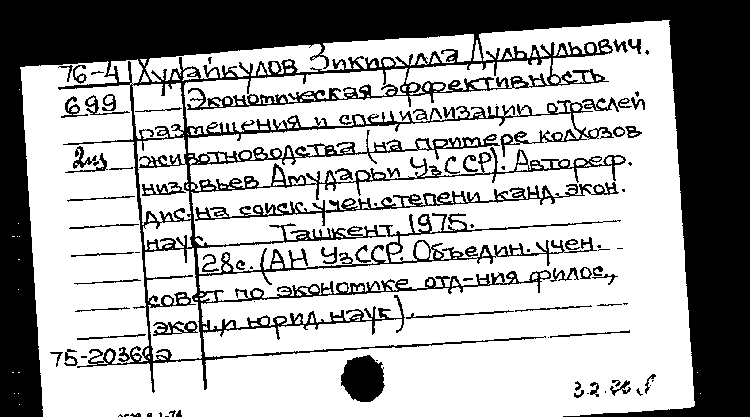 76-4 Худайкулов, Зикирулла Дульдульович.
699 Экономическая эффективность
размещения и специализации отраслей
2из животноводства (на примере колхозов
низовьев Амударьи УзССР). Автореф.
дис. на соиск. учен. степени канд. экон.
наук. Ташкент, 1975.
28с. (АН УзССР. Объедин. учен.
совет по экономике отд-ния филос.,
экон. и юрид. наук).
75-20369а